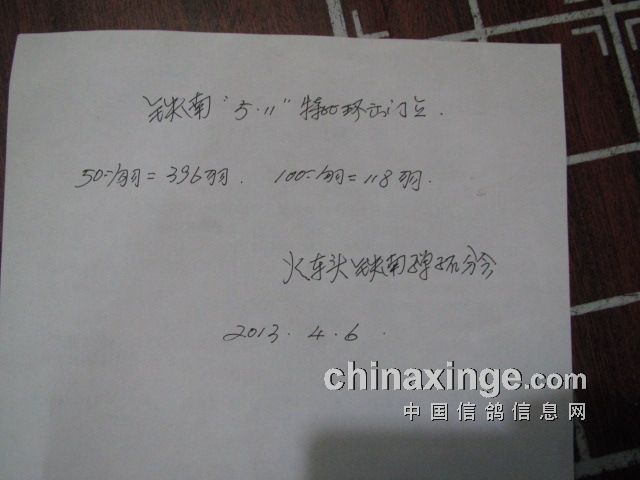 铁南“5.11”特比环出门立.
50元/羽=396羽. 100元/羽=118羽.
火车头铁南 分会
2013.4.6.
chinaxinge.com
中国信鸽信息网